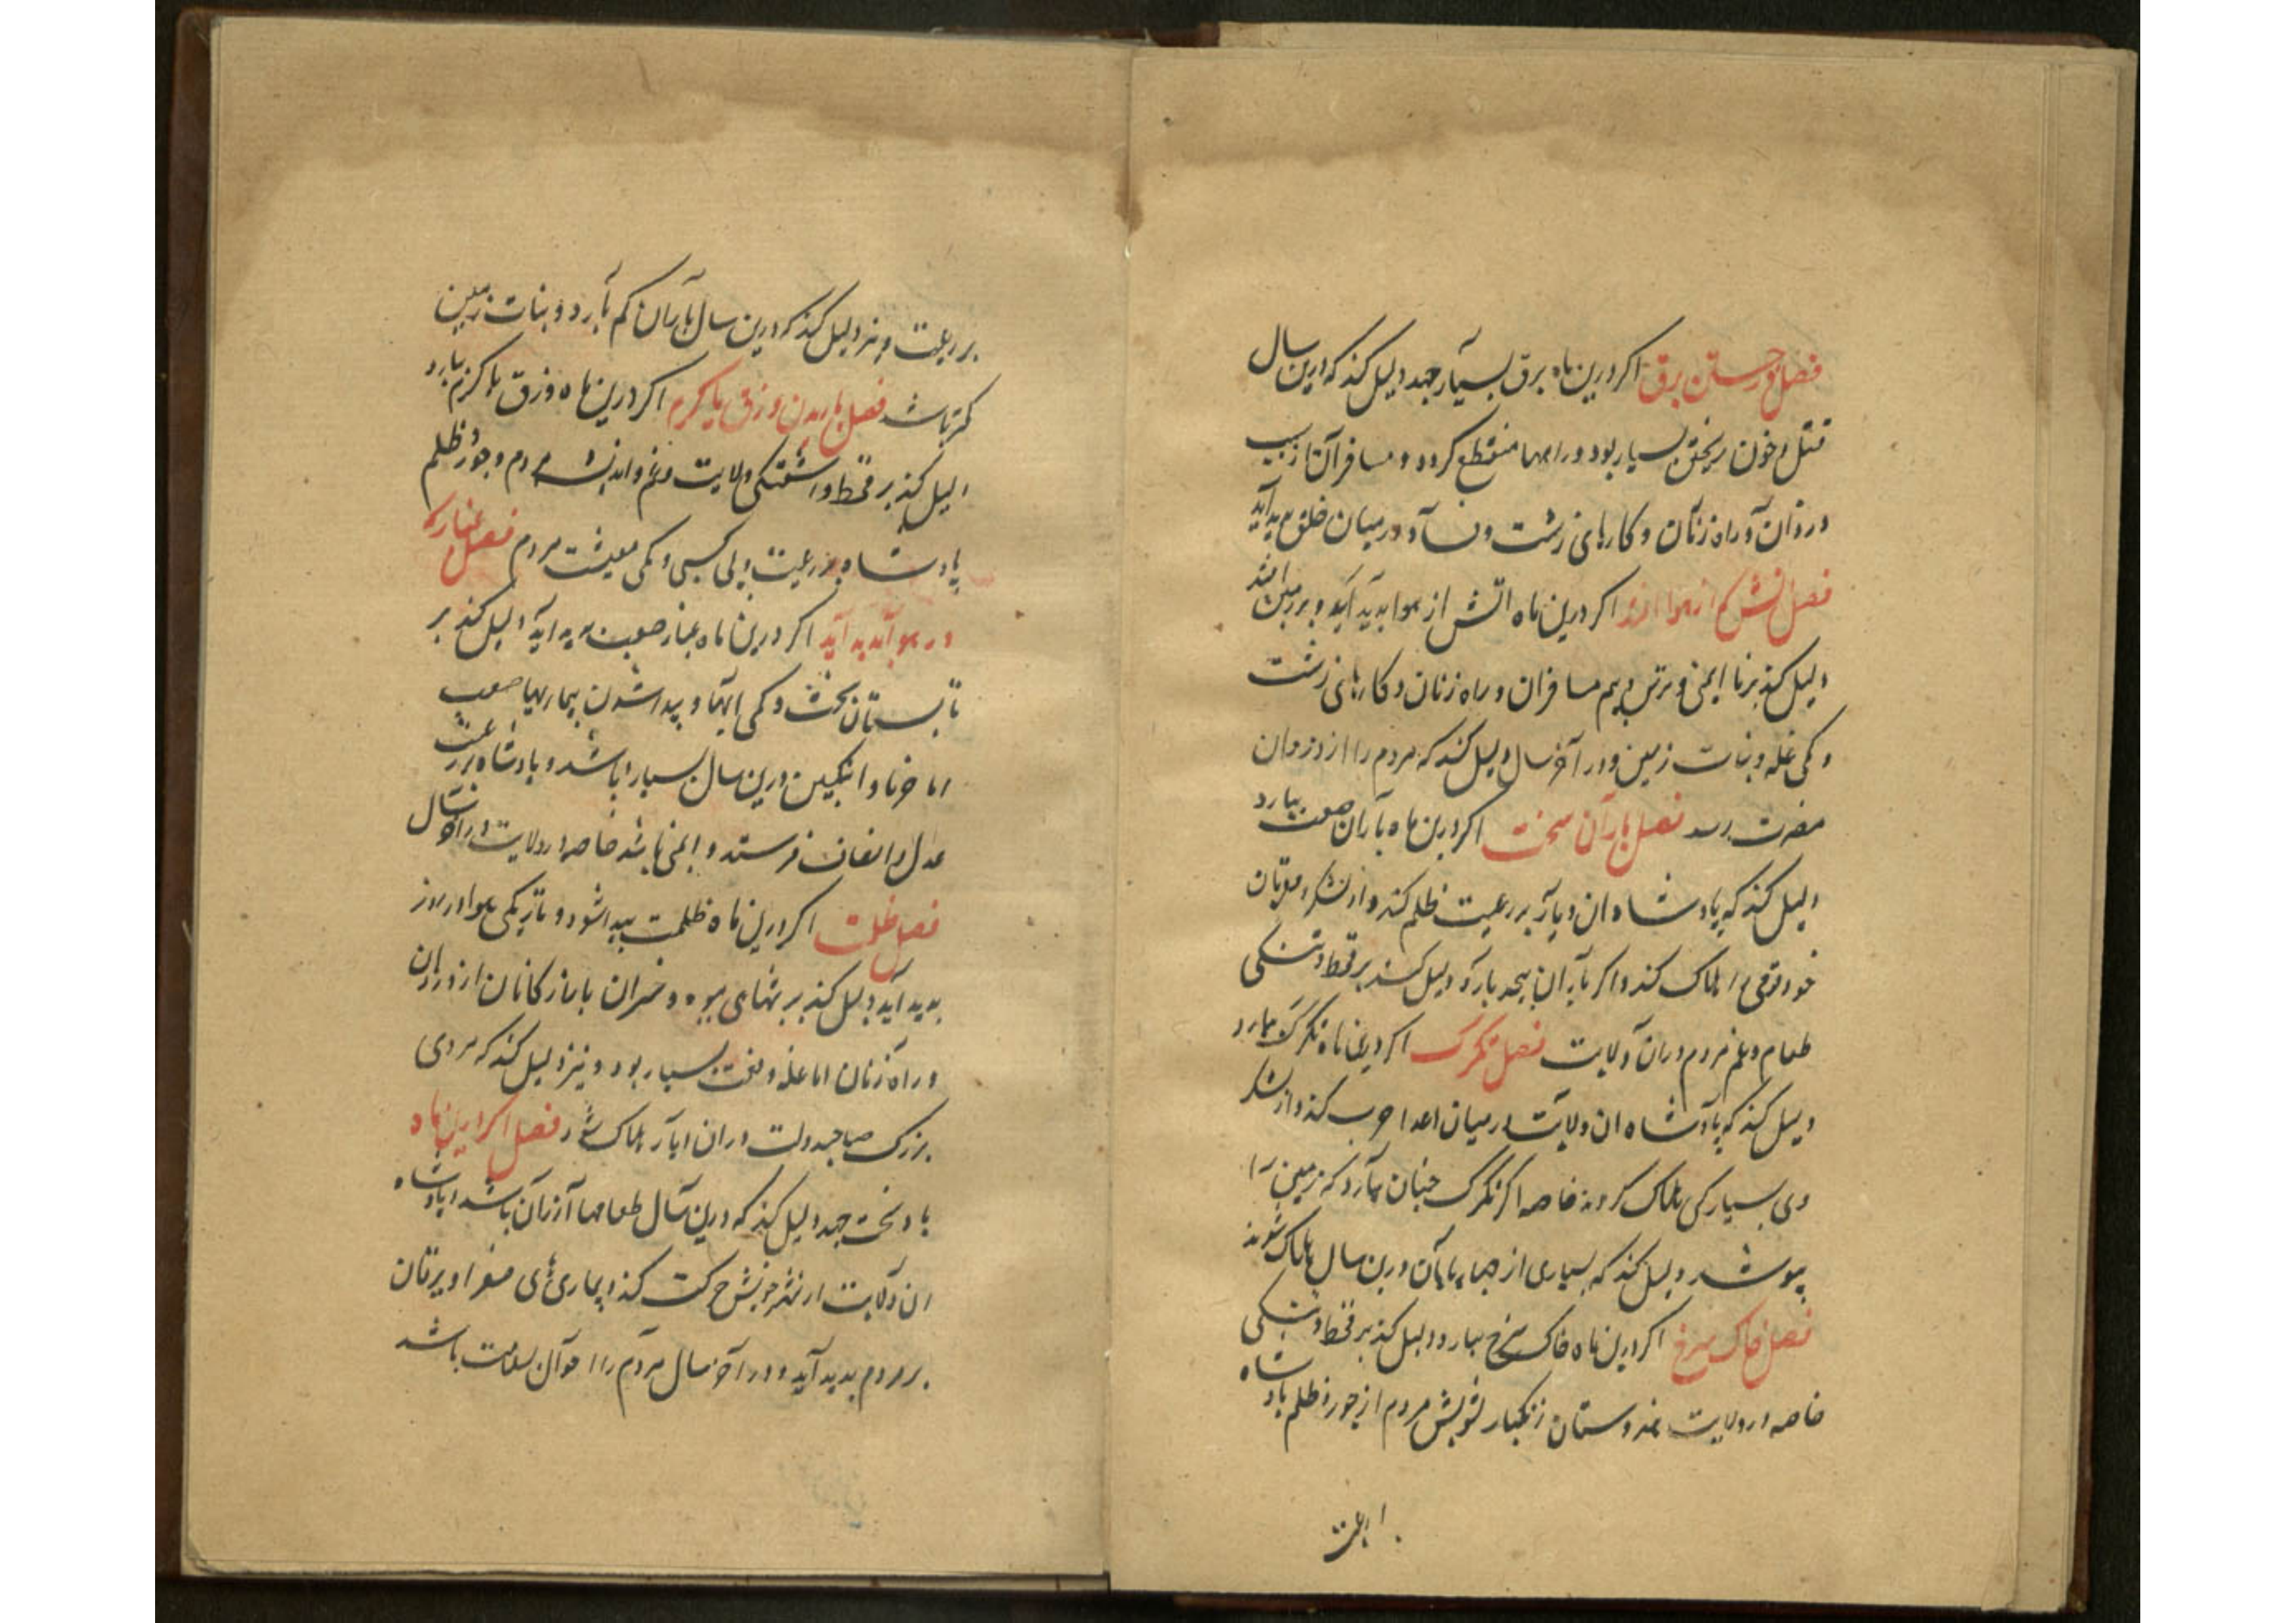 فصل در جستن برق اکر درین ماه برق بسیار جهد دلیل کند که درین سال
قتل و خون ریختن بسیار بود و راهها منقطع کردد و مسافران از سبب
دزدان و راه زنان و کارهای زشت و فساد در میان خلق پدید آید
فصل اتش که از هوا افتد اکر درین ماه اتش از هوا پدید آید و بر زمین افتد
دلیل کند بر نا ایمنی و ترس و بیم مسافران و راه زنان و کارهای زشت
و کمی غله و نبات زمین و در آخر سال دلیل کند که مردم را از دزدان
مضرت رسد فصل باران سخت اکر درین ماه باران صعب ببارد
دلیل کند که پادشاه ان دیار بر رعیت ظلم کند و از لشکر و مقربان
خود قومی را هلاک کند و اکر باران بیحد بارد دلیل کند بر قحط و تنکی
طعام و غم مردم دران ولایت فصل تکرک اکر درین ماه تکرک ببارد
دلیل کند که پادشاه ان ولایت در میان اعدا حرب کند و از لشکر
وی بسیار کس هلاک کردند خاصه اکر تکرک چنان ببارد که زمین را
بپوشد دلیل کند که بسیاری از چهارپایان درین سال هلاک شوند
فصل خاک سرخ اکر درین ماه خاک سرخ ببارد دلیل کند بر قحط و تنکی
خاصه در ولایت هندوستان زنکبار تشویش مردم از جور و ظلم پادشاه
بر رعیت
بر رعیت و نیز دلیل کند که درین سال باران کم بارد و نبات زمین
کمتر باشد فصل باریدن وزق یا کرم اکر درین ماه وزق یا کرم ببارد
دلیل کند بر قحط و اشفتکی ولایت و غم و اندیشه مردم و جور و ظلم
پادشاه بر رعیت و بی کسبی و کمی معیشت مردم فصل غبار که
در هوا پدید آید اکر درین ماه غبار صعب پدید اید دلیل کند بر
تابستان سخت و کمی ابها و پیدا شدن بیماریها صعب
اما خرما و انکبین درین سال بسیار باشد و پادشاه بر رعیت
عدل و انصاف فرستد و ایمنی باشد خاصه در ولایت در آخر سال
فصل ظلمت اکر درین ماه ظلمت پیدا شود و تاریکی هوا در روز
پدید آید دلیل کند بر میوه و خسران بازرکانان از دزدان
و راه زنان اما غله و نعمت بسیار بود و نیز دلیل کند که مردی
بزرک صاحبدولت دران دیار هلاک شود فصل اکر درین ماه
باد سخت جهد دلیل کند که درین سال طعامها ارزان باشد و پادشاه
ان ولایت از شهر خویش حرکت کند و بیماری های صفرا و یرقان
بر مردم پدید آید و در آخر سال مردم را احوال بسلامت باشد